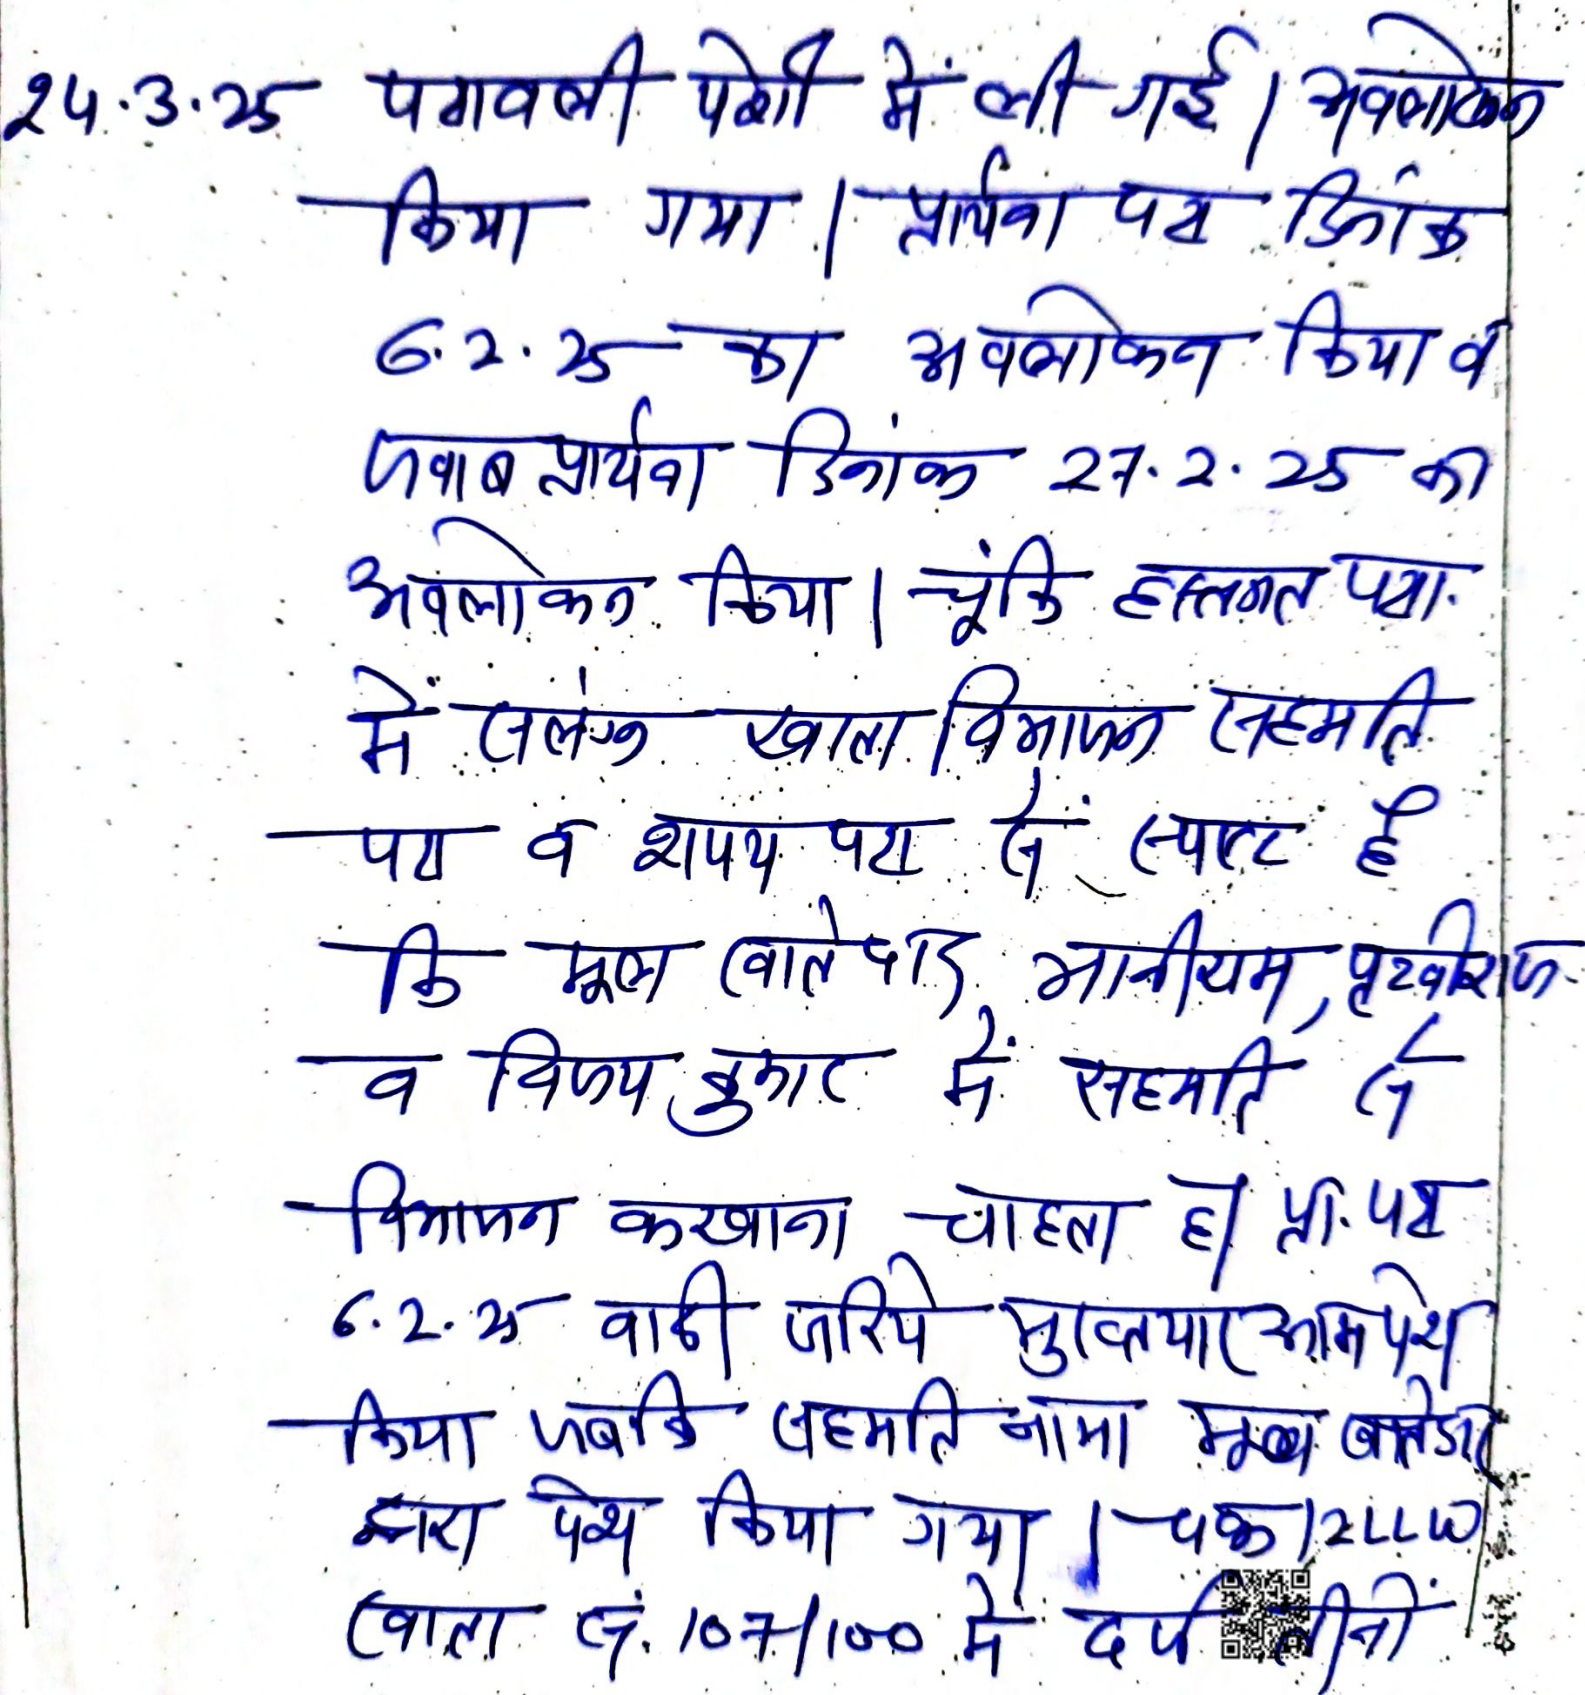 24.3.25 पत्रावली पेशी में ली गई। अवलोकन
किया गया। प्रार्थना पत्र दिनांक
6.2.25 का अवलोकन किया व
जवाब प्रार्थना दिनांक 27.2.25 का
अवलोकन किया। चूंकि हस्तगत पत्रा.
में सलंग्न खाता विभाजन सहमति
पत्र व शपथ पत्र से स्पष्ट है
कि मूल खातेदार मानीराम, पृथ्वीराज
व विजय कुमार में सहमति से
विभाजन करवाना चाहता है। प्रा. पत्र
6.2.25 वादी जरिये मुख्तयार आम पेश
किया जबकि सहमति नामा मूल खातेदार
द्वारा पेश किया गया। चक 12LLW
खाता सं. 107/100 में दर्ज तीनों